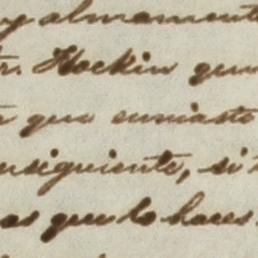 y almament
r. Hockin que
que enviaste
nsiguiente, si
as que lo haces